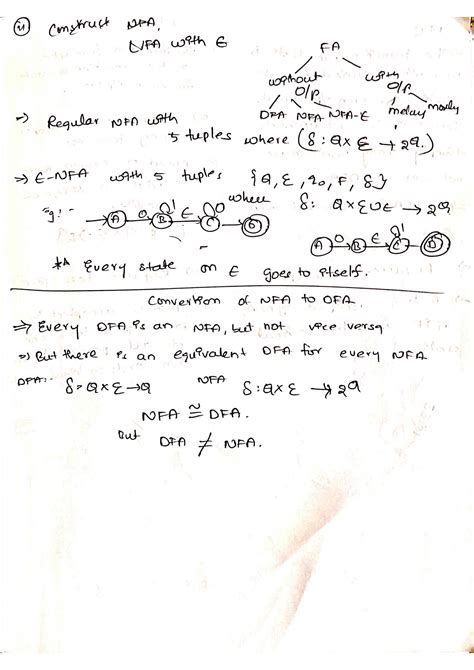 (11) Construct NFA,
NFA with ε
FA
without O/p
with O/p
DFA NFA NFA-E
melay moorly
→) Regular NFA with
5 tuples where (δ: Q x Σ → 2Q.)
⇒) E-NFA with 5 tuples {Q, Σ, q0, F, δ}
where δ: Q x Σ U E → 2Q
eg:- → A 0 B 1 E C 0 D
A 0 B E C 1 D
** Every state on E goes to itself.
Convertion of NFA to DFA.
⇒ Every DFA is an NFA, but not vice versa
⇒) But there is an equivalent DFA for every NFA
DFA:- δ = Q x Σ → Q NFA δ: Q x Σ → 2Q
NFA ≅ DFA.
But DFA ≠ NFA.